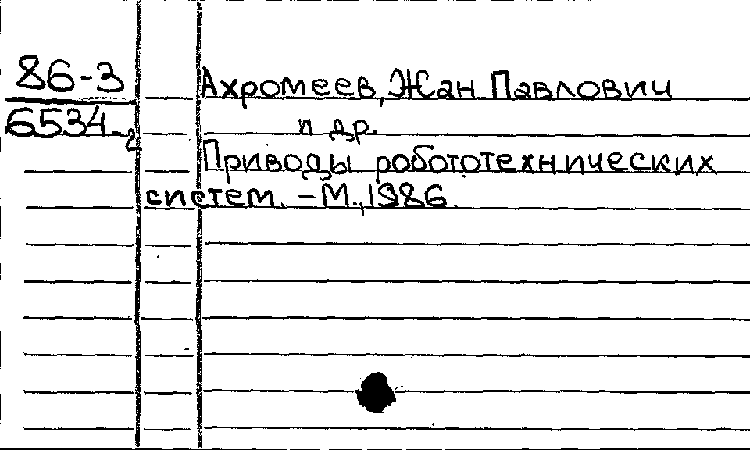 86-3
6534-2
Ахромеев, Жан Павлович
и др.
Приводы робототехнических
систем. - М., 1986.